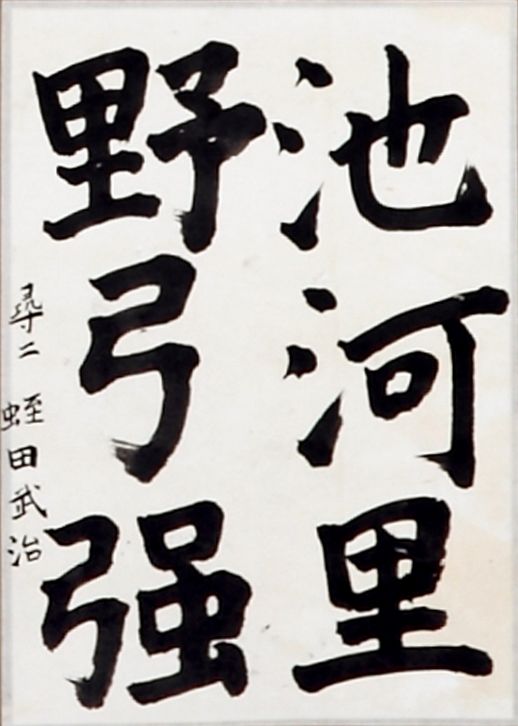 池河里
野弓强
尋二 蛭田武治